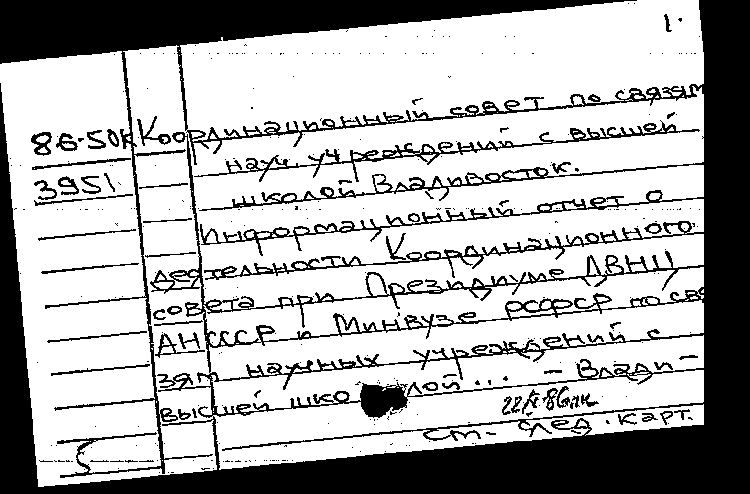 1.
86-50к Координационный совет по связям
науч. учреждений с высшей
3951 школой. Владивосток.
Информационный отчет о
деятельности Координационного
совета при Президиуме ДВНЦ
АНСССР и Минвузе РСФСР по свя
зям научных учреждений с
высшей шко лой... - Влади-
см. след. карт.
5